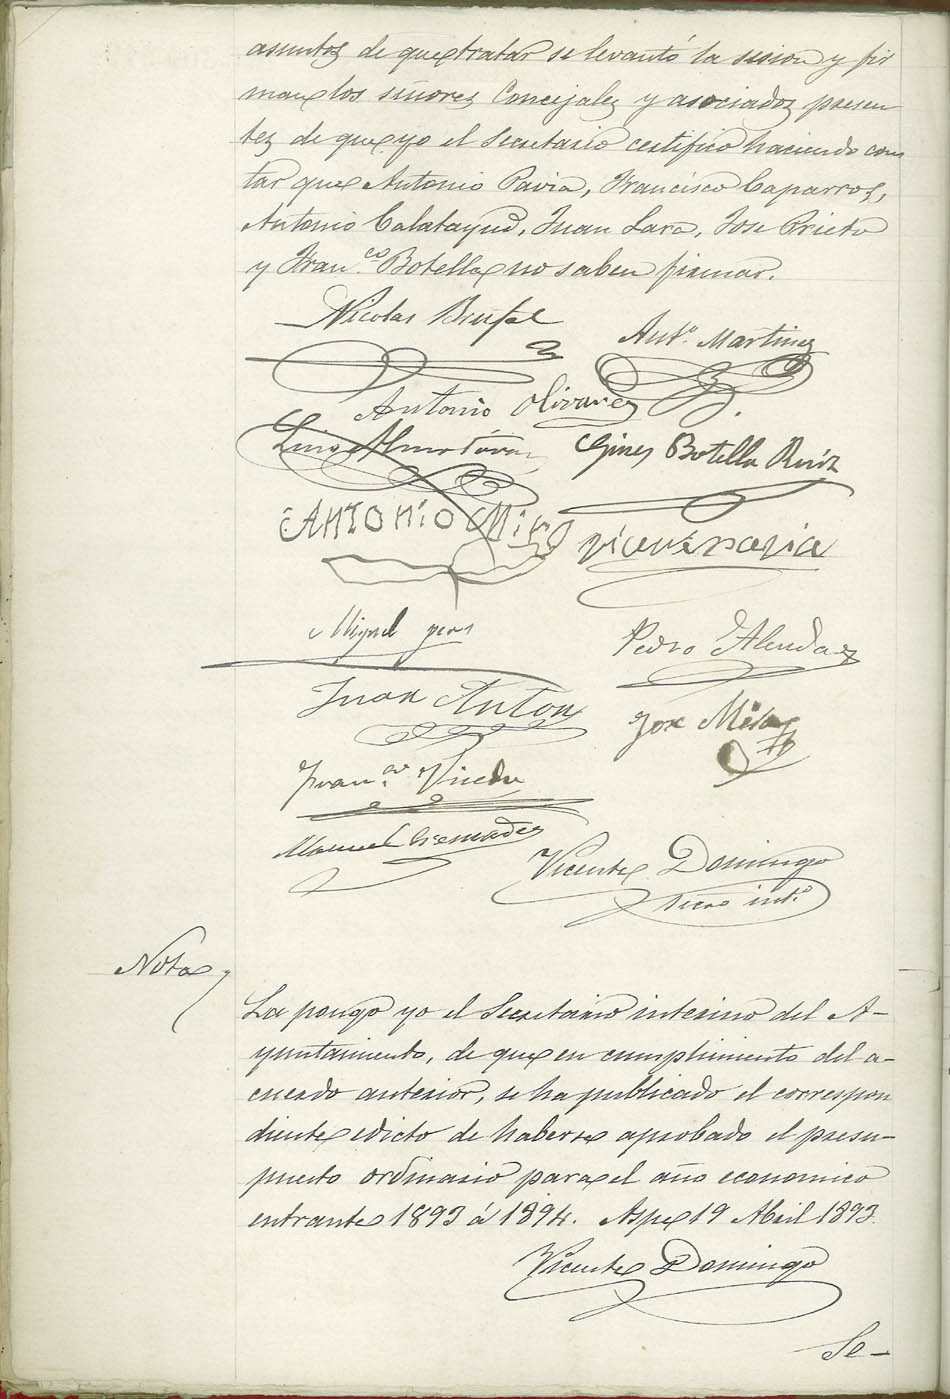 asuntos de que tratar se levantó la sesion y fir
man los señores Concejales y asociados presen
tes de que yo el Secretario certifico haciendo cons
tar que Antonio Pavia, Francisco Caparros,
Antonio Calatayud, Juan Lara, Jose Prieto
y Fran.co Botella no saben firmar.
Nicolas
Ant.o Martinez
Antonio Olivares
Luis Almodóvar
Gines Botella Ruiz
ANTONIO Miro
Miguel
Pedro Alenda
Juan Anton
Jose Mira
Fran.co
Manuel
Vicente Domingo
Srio int.o
Nota
La pongo yo el Secretario interino del A-
yuntamiento, de que en cumplimiento del a-
cuerdo anterior, se ha publicado el correspon
diente edicto de haberse aprobado el presu-
puesto ordinario para el año economico
entrante 1893 á 1894. Aspe 19 Abril 1893.
Vicente Domingo
Se-